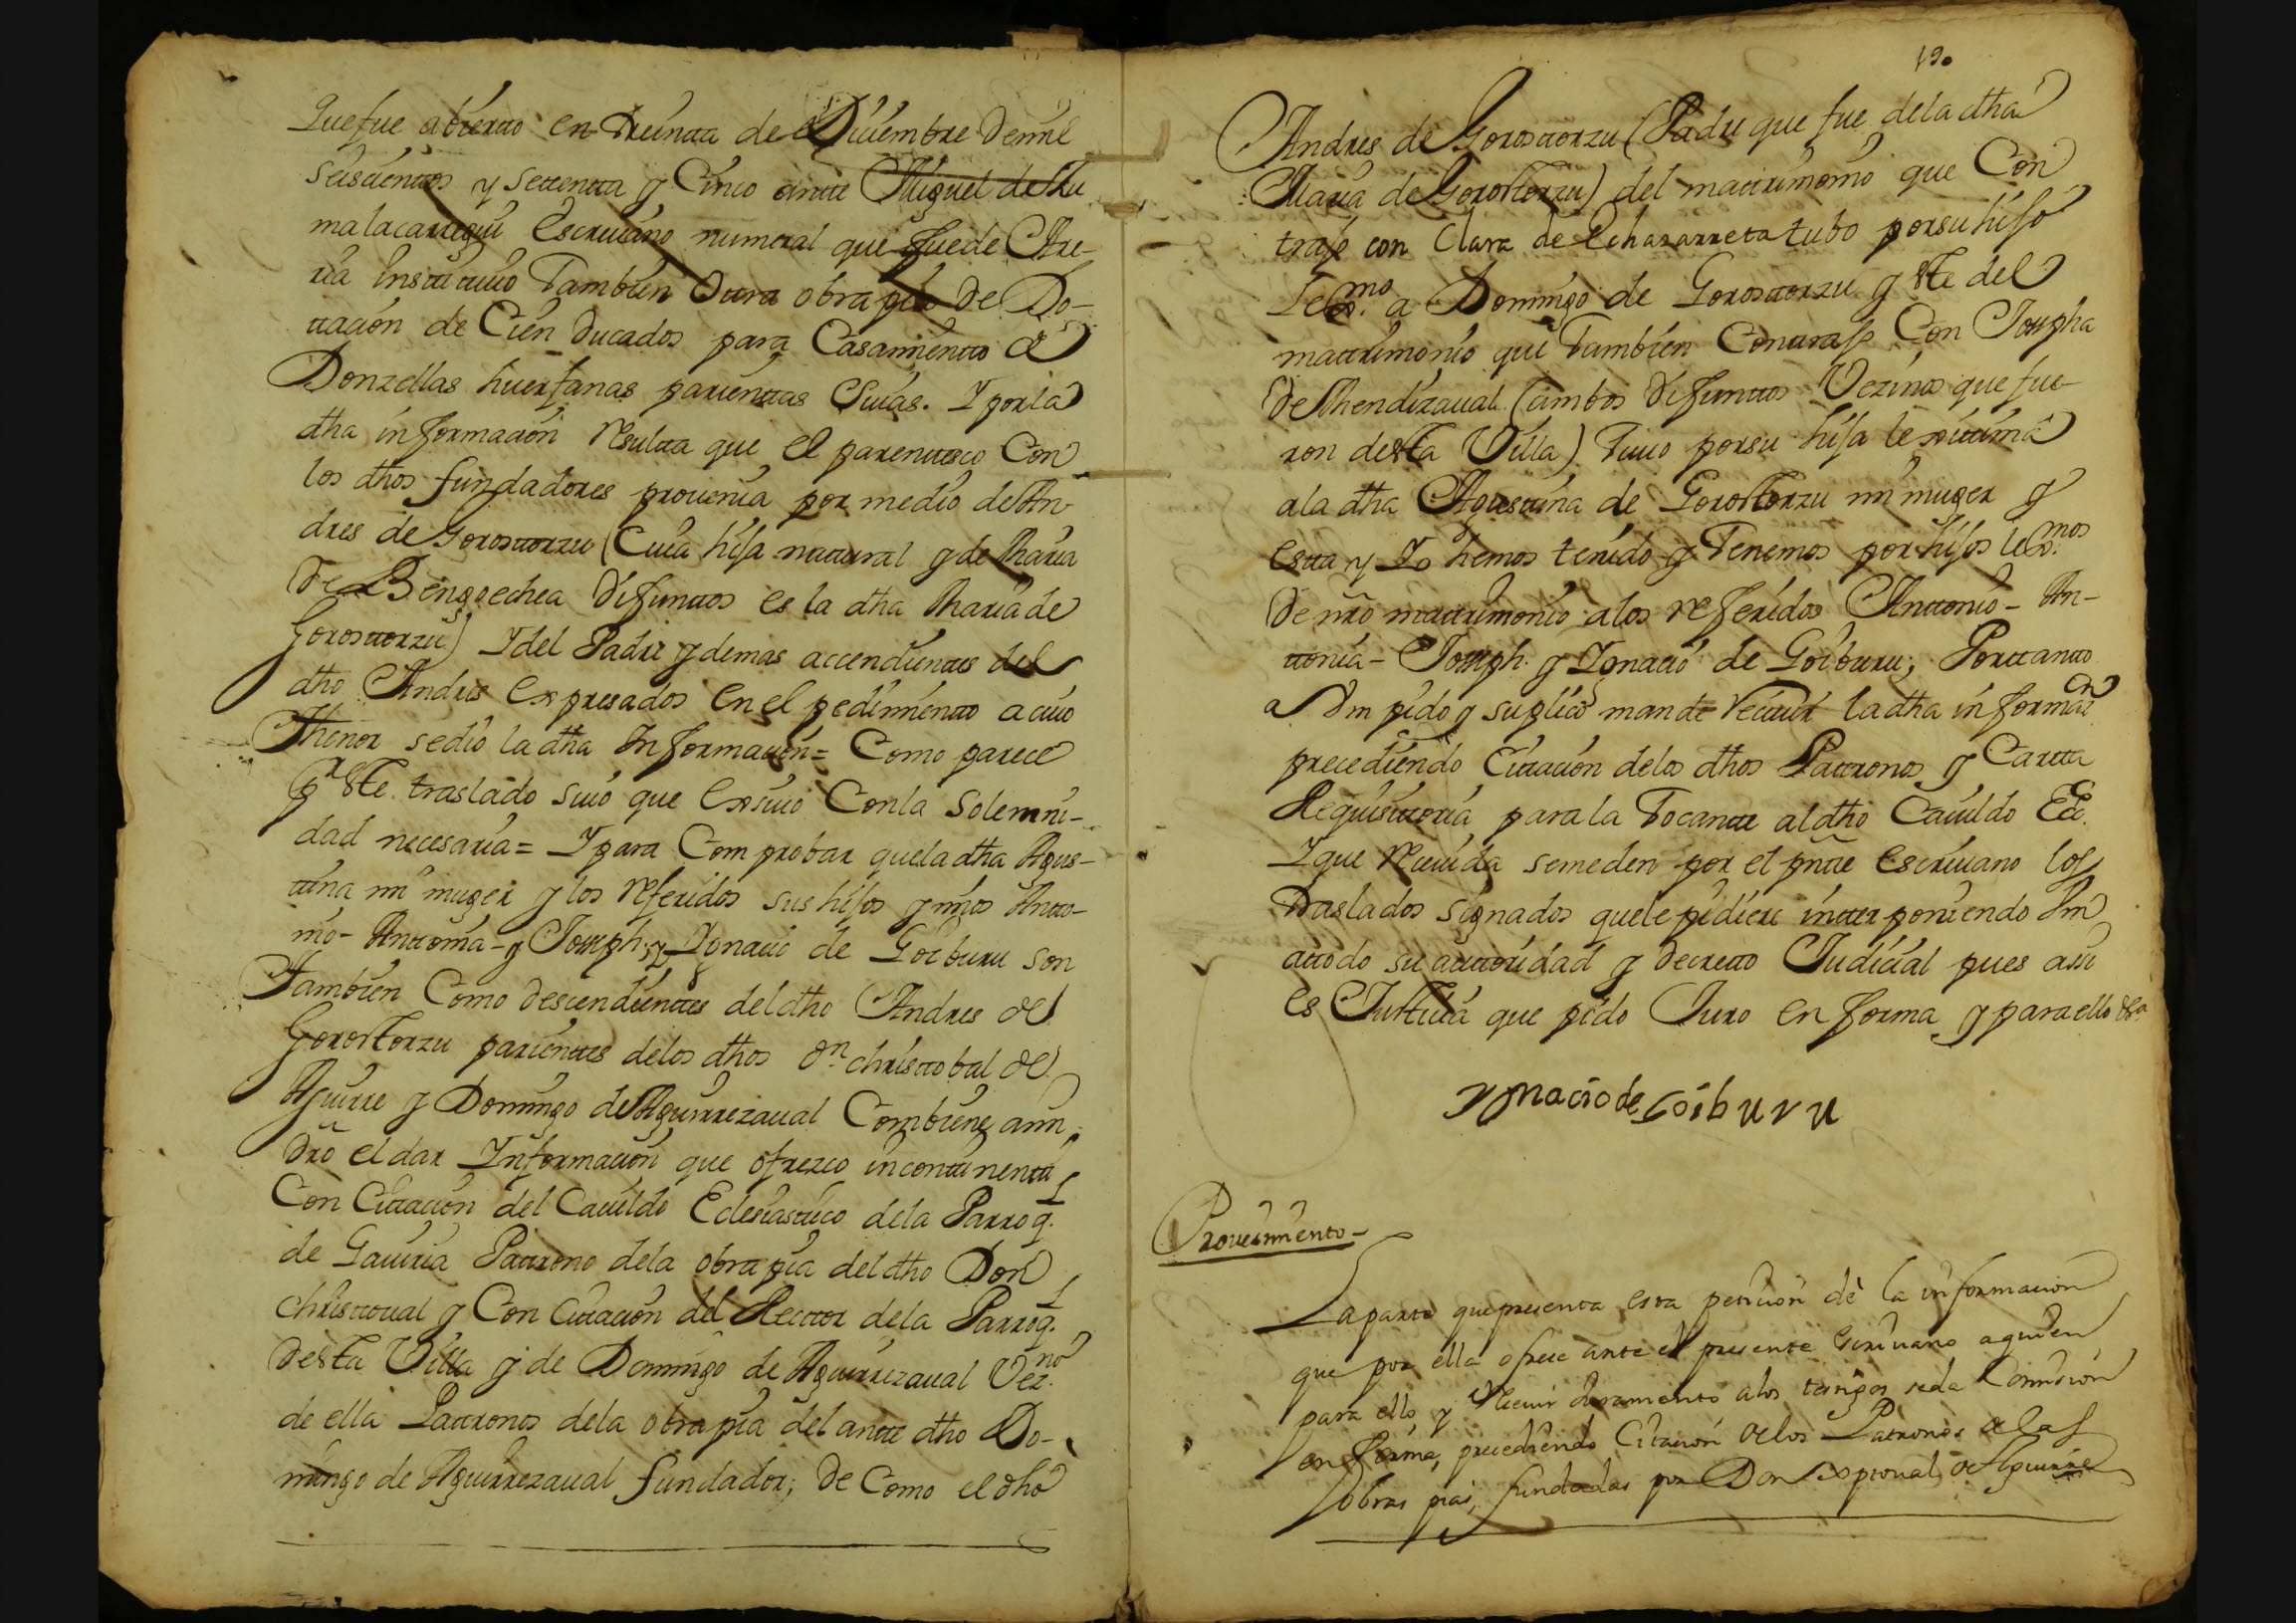 Que fue abierto en treinta de Diciembre de mil
seiscientos y settenta y Cinco ante Miguel de Zu
malacarregui escriuano numeral que fue de Are-
ria Instituio Tambien Otra obra pia de Do-
tacion de Cien ducados para Casamiento de
Donzellas huerfanas parientas Suias. Y por la
dha informacion resulta que el parentesco Con
los dhos fundadores prouenia por medio de An
dres de Gorostorzu (Cuia hija natural y de Maria
de Bengoechea difuntos es la dha Maria de
Gorostorzu) Y del Padre y demas accendientes del
dho Andres expresados en el pedimiento a cuio
Thenor se dio la dha Informacion = Como parece
pr. este traslado suio que exsiuo Con la solemni-
dad necesaria = Y para Comprobar que la dha Agus-
tina mi muger y los referidos sus hijos y mios Anto-
nio - Antonia - y Joseph. y Ygnacio de Goiburu son
Tambien Como descendientes del dho Andres de
Gorostorzu parientes de los dhos Dn. christobal de
Aguirre y Domingo de Aguirrezaual Combiene a mi
dro el dar Informacion que ofrezco incontinenti
Con Citacion del Cauildo Eclesiastico de la Parroq.
de Gauiria Patrono de la obra pia del dho Don
christoual y Con Citacion del Rector de la Parroq.
desta Villa y de Domingo de Aguirrezaual Vez.no
de ella Patronos de la obra pia del ante dho Do-
mingo de Aguirrezaual fundador; de Como el dho
190
Andres de Gorostorzu (Padre que fue de la dha
Maria de Gorostorzu) del matrimonio que Con
trajo con Clara de Echazarreta tubo por su hijo
lex.mo a Domingo de Gorostorzu y este del
matrimonio que Tambien Contrajo Con Joseph a
de Mendizaual (ambos difuntos Vezinos que fue
ron desta Villa) Tuuo por su hija lexitima
a la dha Agustina de Gorostorzu mi muger y
esta y Yo hemos tenido y Tenemos por hijos lex.mos
de nro matrimonio a los referidos Antonio - An-
tonia - Joseph. y Ygnacio de Goiburu; Por tanto
a Vm pido y suplico mande reciuir la dha informaon
precediendo Citacion de los dhos Patronos y Carta
Requisitoria para la Tocante al dho Cauildo Ecc.
Y que reciuida se me den por el pnte escriuano los
Traslados signados que le pidiere interponiendo Vm
a todo su autoridad y decreto Judicial pues assi
es Justicia que pido Juro en forma y para ello &a
Ygnacio de Goiburu
Proueimiento -
La parte que presenta esta peticion dè la informacion
que por ella ofrece ante el presente escriuano a quien
para ello y Reciuir Juramento a los testigos se da Comision
en forma, precediendo Citacion de los Patronos de las
obras pias, fundadas por Don xptoual de Aguirre